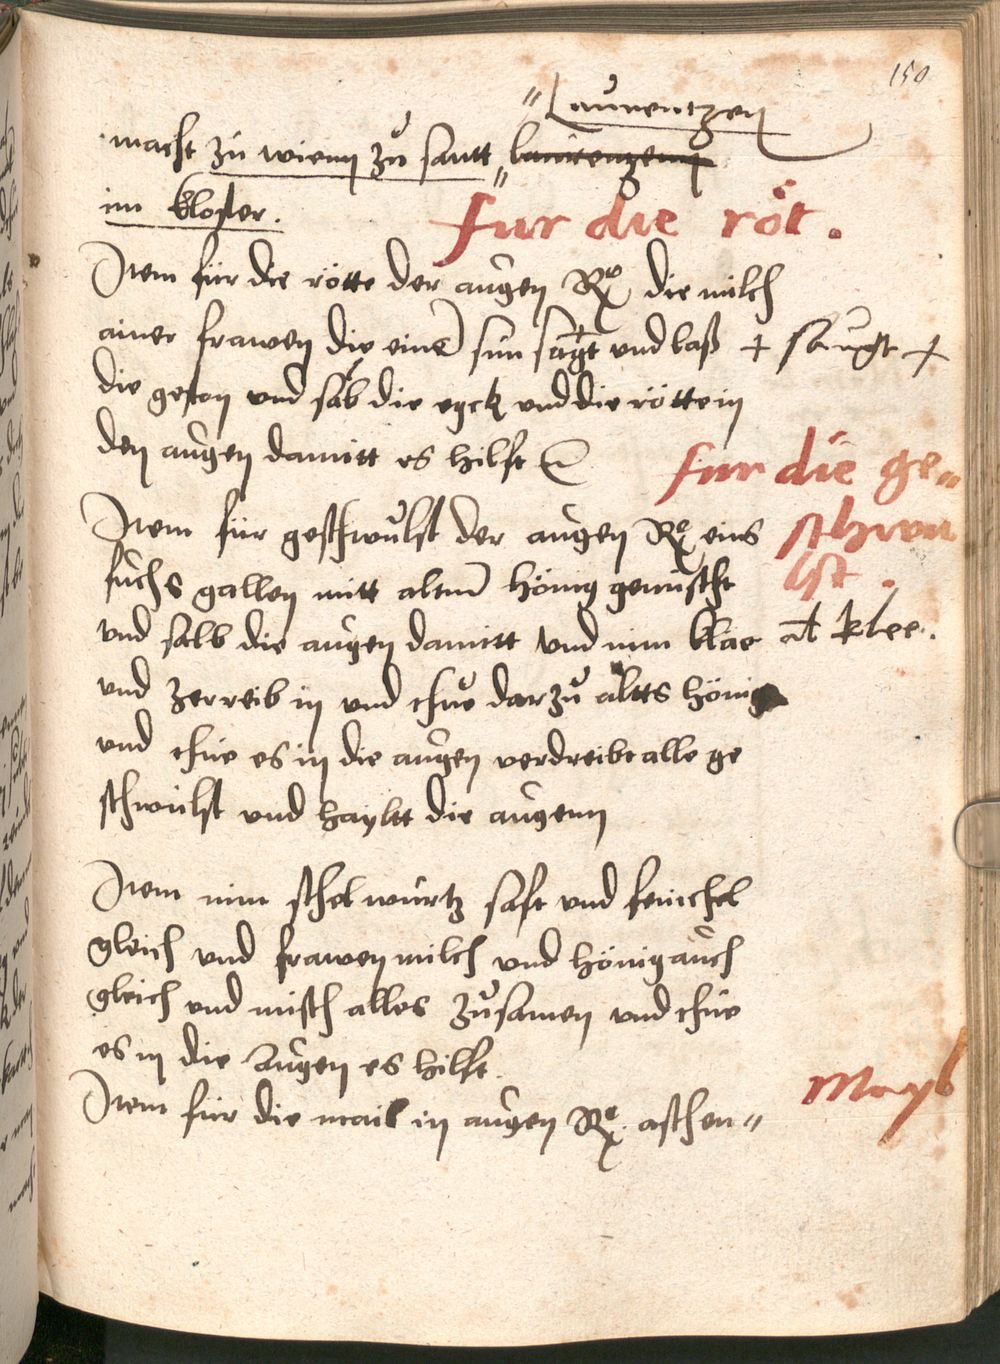 150
Laurentzen
macht zu wienn zů santt laurenzenn
im kloster.
fur die röt.
Item für die rötte der augen Rx die milch
ainer frawen die einen sun sagt und laß + saugt +
die geston vnd salb die egck vnd die rötte in
den augen damitt es hilft
fur die ge=
Item für geschwulst der augen Rx eins schwu
lst.
fuchs gallen mitt altem hönig gemischt
vnd salb die augen damitt vnd nim klae al klee.
vnd zerreib in vnd thue darzu altts hönig
vnd thüe es in die augen verdreibt alle ge
schwulst vnd hayltt die augenn
Item nim schelwurtz saft vnd fenichel
gleich vnd frawen milch vnd hönig auch
gleich vnd misch alles zůsamen vnd thüe
es in die augen es hilft.
Mayl
Item für die mail in augen Rx. aschen=